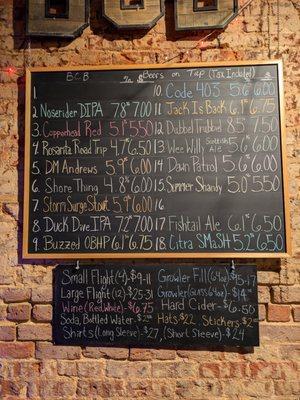 BCB % $ Beers on Tap (Tax Included) % $
1.
2 Noserider DIPA 7.8% 7.00
3. Copperhead Red 5.1% 5.50
4 Rosarita Road Trip 4.7% 6.50
5. DM Andrews 5.9% 6.00
6. Shore Thing 4.8% 6.00
7. Storm Surge Stout 5.9% 6.00
8 Duck Dive IPA 7.2% 7.00
9. Buzzed OBHP 6.1% 6.75
10. Code 403 5.6% 6.00
11. Jack Is Back 6.1% 6.75
12. Dubbel Trubbel 8.5% 7.50
13. Wee Will Scottish Ale 5.6% 6.00
14 Dawn Patrol 5.6% 6.00
15. Summer Shandy 5.0% 5.50
16
17 Fishtail Ale 6% 6.50
18 Citra SMaSH 5.2% 6.50
Small Flight (4) $9-11
Large Flight (12) $25-31
Wine (Red, White) $6.75
Soda, Bottled Water
Shirts (Long Sleeve) $27, (Short Sleeve) $24
Growler Fill (64oz) $15-17
Growler (Glass 64oz)
Hard Cider $6.50
Hats $22 Stickers